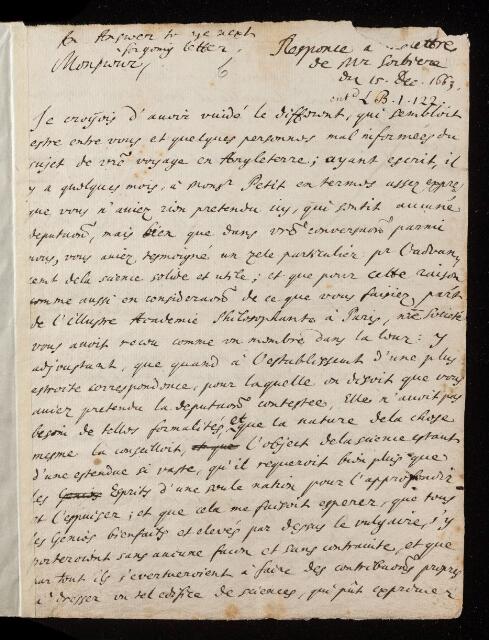 An Answer to ye next
forgoing letter.
Responce a lettre
de Mr Sorbiere
du 15. Dec. 1663.
entd LB.1.127.
Monsieur,
6
Je croyois d'avoir vuidé le different, qui sembloit
estre entre vous et quelques personnes mal informees du
sujet de vre voyage en Angleterre; ayant escrit il
y a quelques mois, a Monsr Petit en termes assez expres
que vous n'aviez rien pretendu icy, qui sentit aucune
deputaon, mais bien que dans vre conversaon parmi
nous, vous aviez tesmoigné un zele particulier pr l'advan-
cemt de la science solide et utile; et que pour cette raison
comme aussi en consideraon de ce que vous faisiez part
de l'illustre Academie Philosophante a Paris, nre Societé
vous avoit receu comme un membre dans la leur: Y
adjoustant, que quand à l'establissemt d'une plus
estroite correspondence, pour laquelle on disoit que vous
aviez pretendu la deputaon contestée, Elle n'avoit pas
besoin de telles formalités, et que la nature de la chose
mesme la conseilloit, et que l'object de la science estant
d'une estendue si vaste, qu'il requeroit bien plus que
les Esprits d'une seule nation pour l'approfondir
et l'espuiser; et que cela me faisoit esperer, que tous
les Genies bienfaits et elevés par dessus le vulgaire, s'y
porteroient sans aucune facon et sans contrainte, et que
par tout ils s'evertueroient à faire des contribuons propres
a dresser un tel edifice de sciences, qui pût exprimer